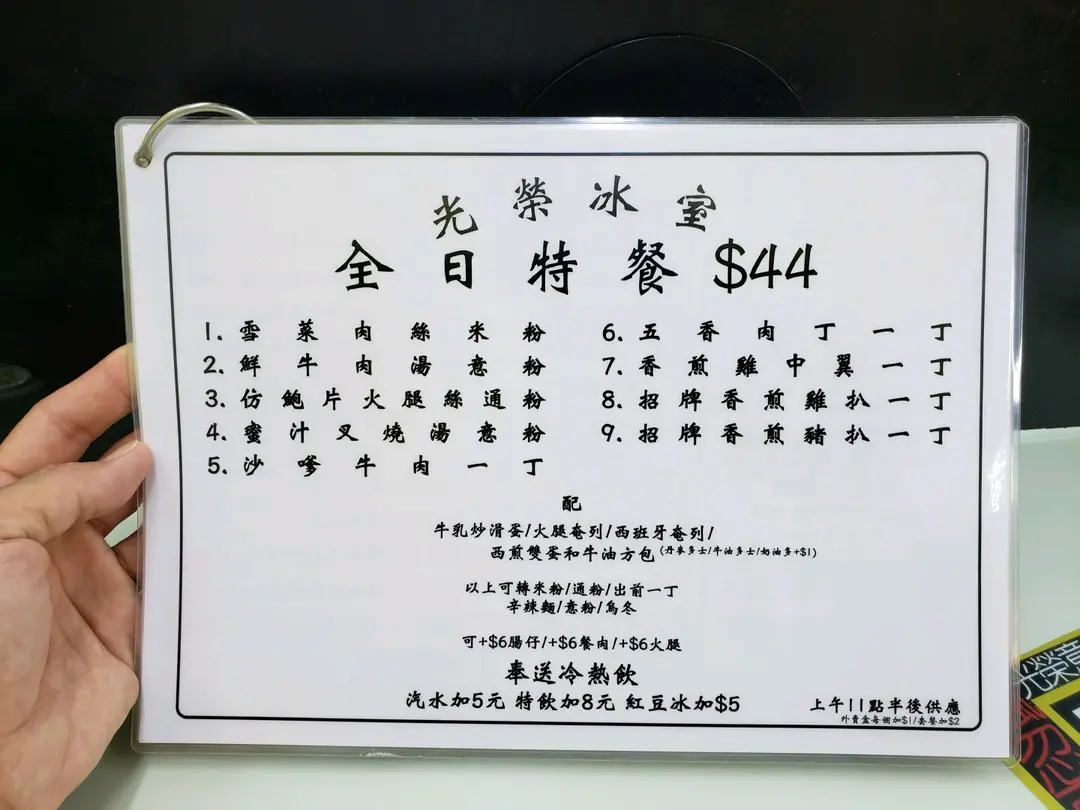 光榮冰室
全日特餐 $44
1. 雪菜肉絲米粉
2. 鮮牛肉湯意粉
3. 仿鮑片火腿絲通粉
4. 蜜汁叉燒湯意粉
5. 沙嗲牛肉一丁
6. 五香肉丁一丁
7. 香煎雞中翼一丁
8. 招牌香煎雞扒一丁
9. 招牌香煎豬扒一丁
配
牛乳炒滑蛋/火腿奄列/西班牙奄列/
西煎雙蛋和牛油方包(丹麥多士/牛油多士/奶油多+$1)
以上可轉米粉/通粉/出前一丁
辛辣麵/意粉/烏冬
可+$6腸仔/+$6餐肉/+$6火腿
奉送冷熱飲
汽水加5元 特飲加8元 紅豆冰加$5
上午11點半後供應
外賣盒每個加$1/套餐加$2
光榮